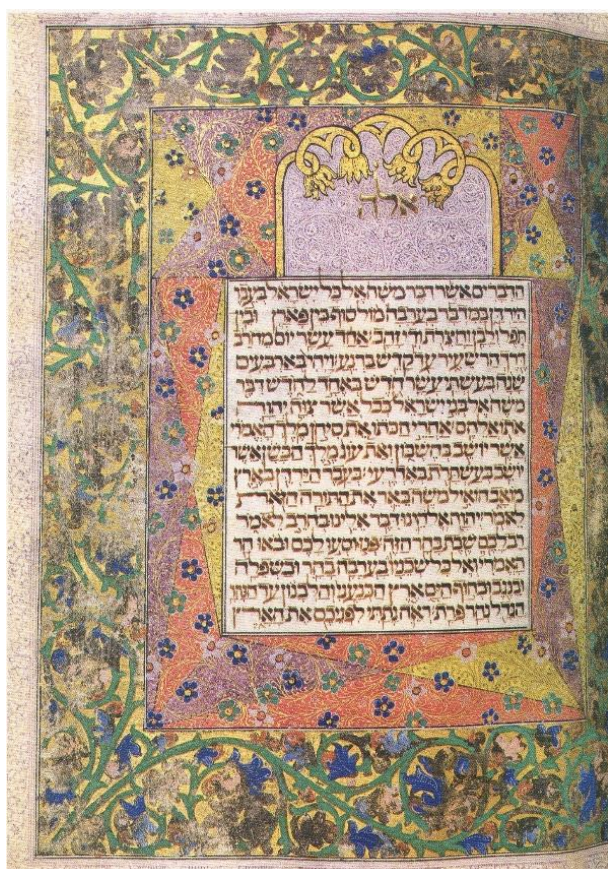 אלה
הדברים אשר דבר משה אל כל ישראל בעבר
הירדן במדבר בערבה מול סוף בין פארן ובין
תפל ולבן וחצרת ודי זהב אחד עשר יום מחרב
דרך הר שעיר עד קדש ברנע ויהי בארבעים
שנה בעשתי עשר חדש באחד לחדש דבר
משה אל בני ישראל ככל אשר צוה יהוה
אתו אלהם אחרי הכתו את סיחן מלך האמרי
אשר יושב בחשבון ואת עוג מלך הבשן אשר
יושב בעשתרת באדרעי בעבר הירדן בארץ
מואב הואיל משה באר את התורה הזאת
לאמר יהוה אלהינו דבר אלינו בחרב לאמר
רב לכם שבת בהר הזה פנו וסעו לכם ובאו הר
האמרי ואל כל שכניו בערבה בהר ובשפלה
ובנגב ובחוף הים ארץ הכנעני והלבנון עד הנהר
הגדל נהר פרת ראה נתתי לפניכם את הארץ